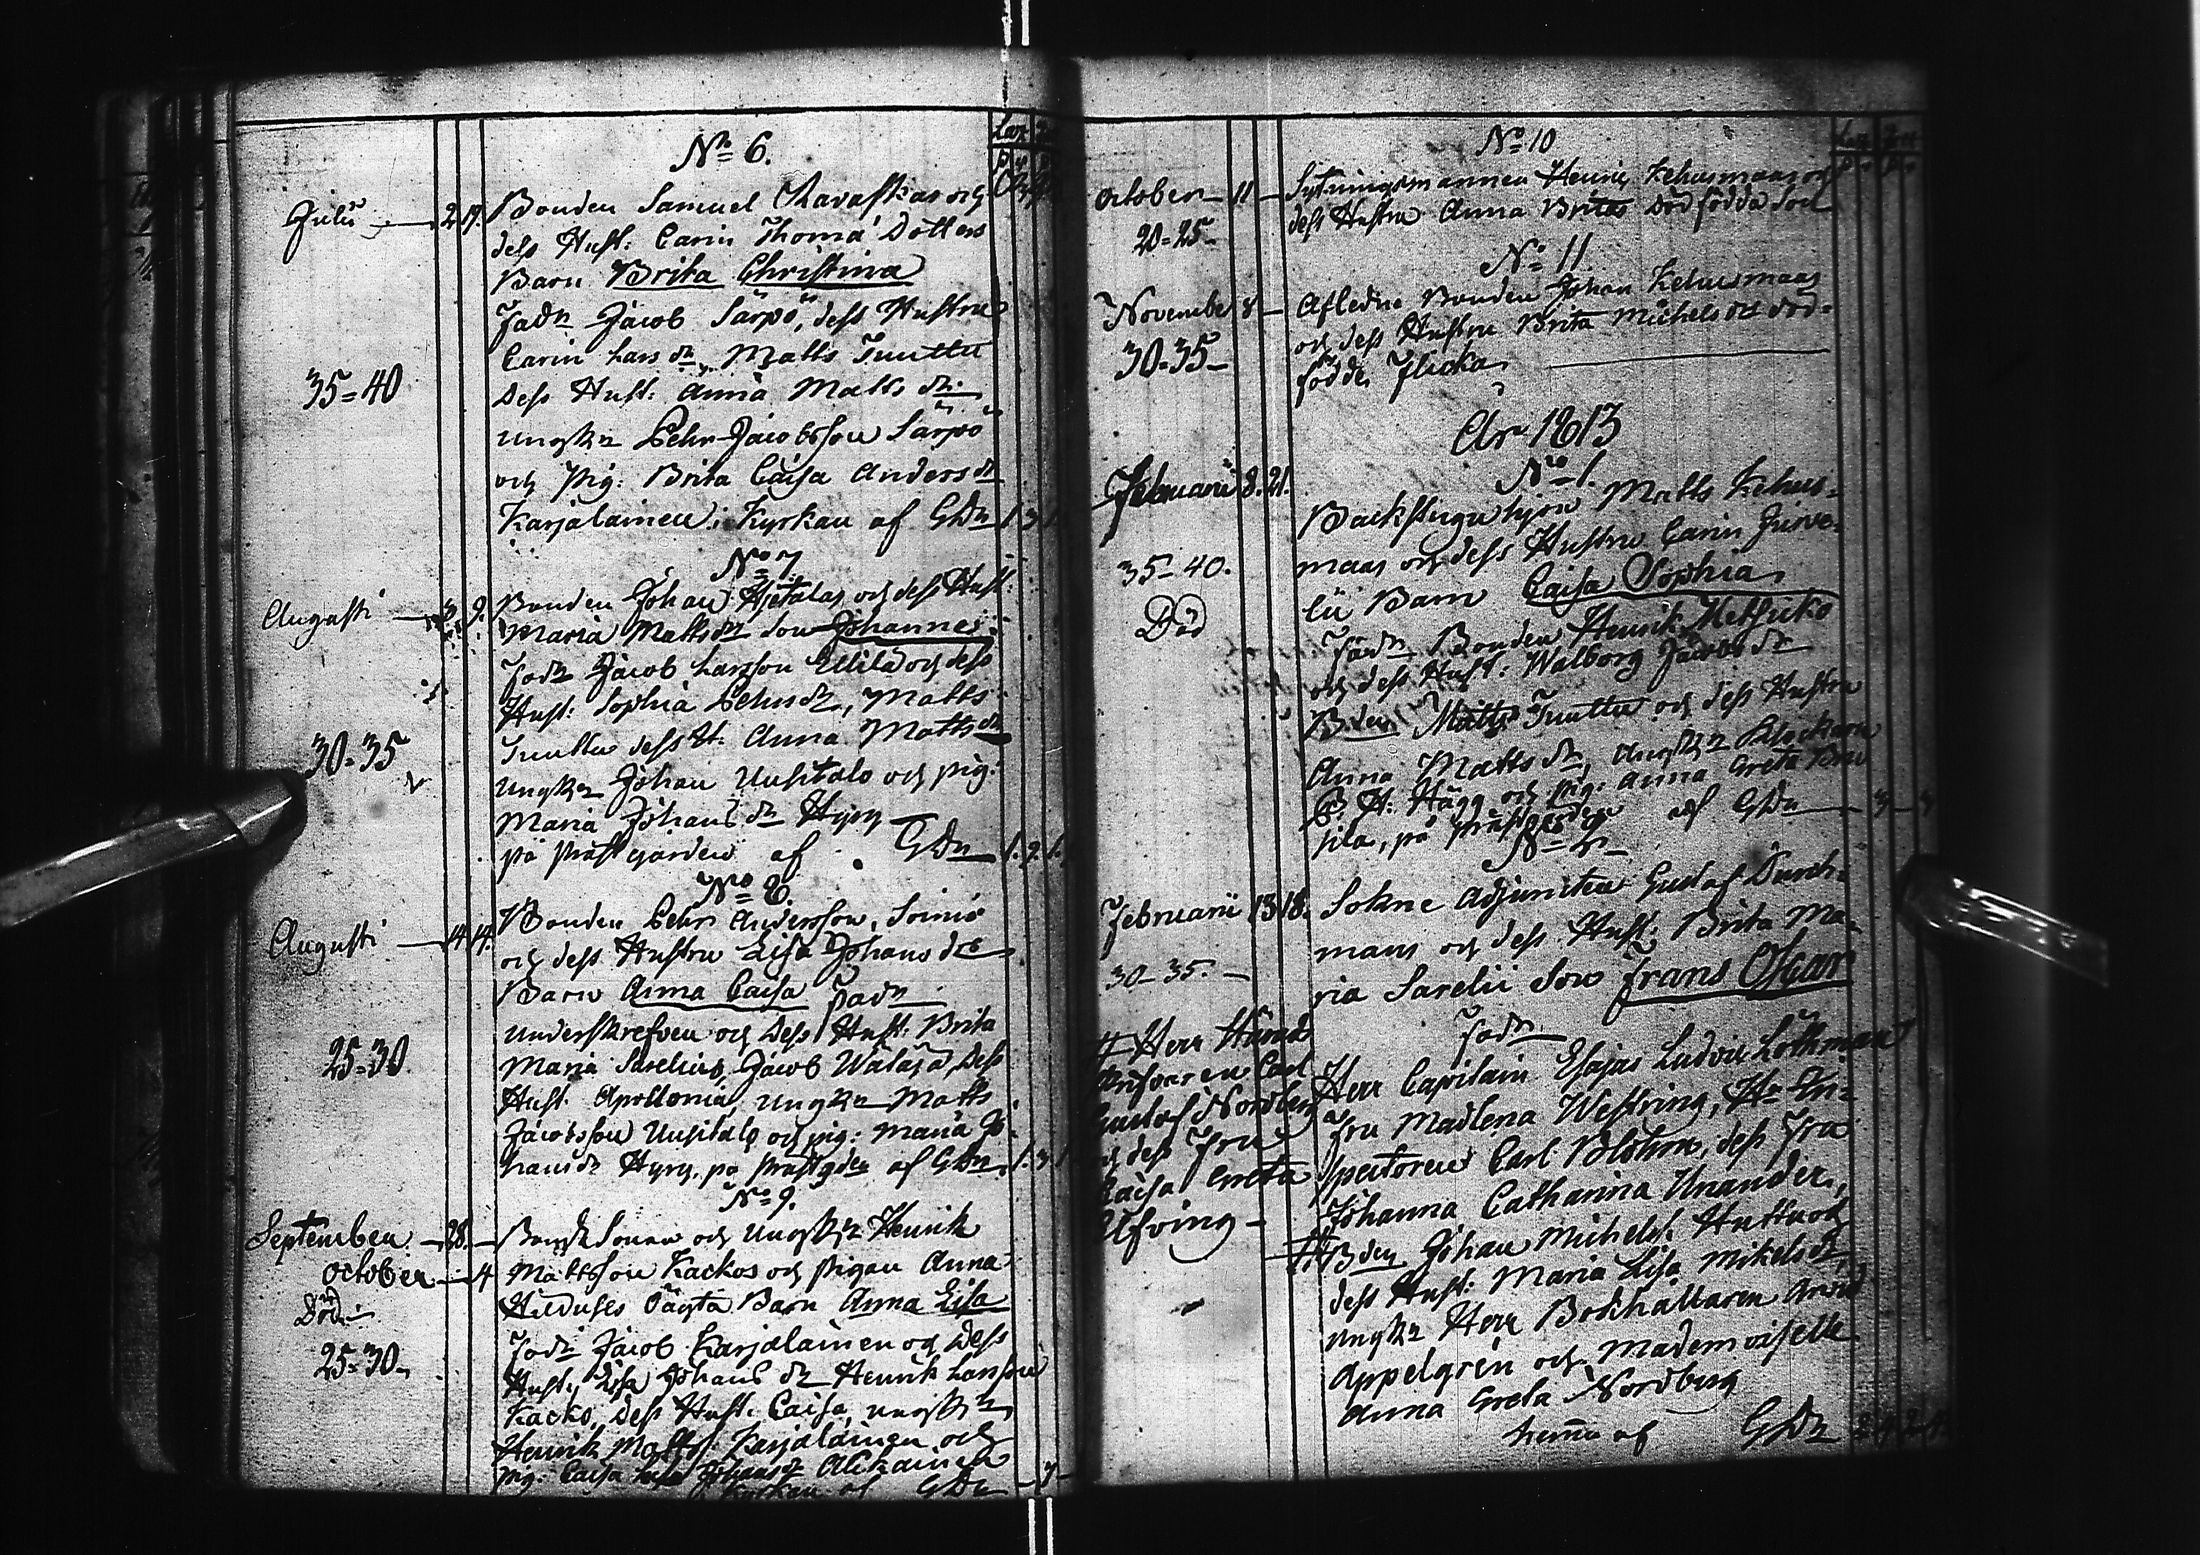 No 6.
Julii 2 9. Bonden Samuel Havaskas och
dess Hust: Carin Thomä Dotters
Barn Brita Christina
Fadr Jacob Särpö, dess Hustru
35=40 Carin Lars dr, Matts Tuuttu
dess Hust: Anna Matts dr.
ungkn Pehr Jacobsson Särpö
och Pig: Brita Caisa Anders dr
Karjalainen, Kyrkan af GDn 1. 3 1.
No 7
Augusti 9. Bonden Johan Hjetalas och dess Hust:
Maria Matts dr Son Johannes.
Fadr Jacob Larsson Ellilä och dess
Hust: Sophia Pehrs dr, Matts
30=35 Tuuttu dess H: Anna Matts dr
ungkn Johan Uusitalo och pig:
Maria Johans dr Hyry
på prästgården af GDn 1. 2. 1.
No 8.
Augusti 14 14. Bonden Pehr Andersson Soinis
och dess Hustru Lisa Johans dr
Barn Anna Caisa Fadr
underskrefven och dess Hust: Brita
25=30. Maria Sarelius, Jacob Wälajä, dess
Hust Apollonia, ungkn Matts
Jacobsson Uusitalo och pig: Maria Jo-
hans dr Hyry, på prästgden af GDn 1. 3 1
No 9.
September 28. Sonen och ungkn Henrik
October 4 Mattsson Kackos och pigan Anna
Död Barn Anna Lisa
25=30 Fadr Jacob Karjalainen och dess
Hust, Lisa Johans dr Henrik Larsson
Kacko, dess Hust. Caisa, ungkn
Henrik Matts. Karjalainen och
pig: Caisa Johans dr Alkainen
Kyrkan af GDn 3
No 10
October 11 Sytningsmannen Henric Kehusmaas och
20=25 dess Hustru Anna Britas dödfödda Son
No 11.
November 8 Afledne Bonden Johan Kehusmaas
30=35 och dess Hustru Brita Michels dr död=
födde Flicka
År 1813
No 1.
Februarii 8. 21. Backstuguhjon Matts Kehus-
maas och dess Hustru Carin Juvo-
35-40. lii Barn Caisa Sophia
Död Fadr Bonden Henrik Metsicko
och dess Hust: Walborg Jacobs dr
Bden Matts Tuuttu och dess Hustru
Anna Matts dr, ungkn Klockarn
E. H: Hägg och pig: Anna Greta
sila, på prästgården af GDn 3 3
No 2
Februarii 13 18. Sokne Adjuncten Gustaf Durch-
man och dess Hust: Brita Ma-
30-35. ria Sarelii Son Frans Oscar
Fadr
Herr Capitain Esajas Ludvig Lothman
Fru Madlena Westring, Hr In-
spectoren Carl Blohm, dess Fru
Johanna Catharina Unander,
# Bden Johan Michels. Huttu och
dess Hust: Maria Lisa Mikels dr,
ungkn Herr Bokhållaren Arvid
Appelgren och Mademoiselle
Anna Greta Nordberg
hemma af GDn 2 4 2 4.
# Herr Härads
skrifvaren Carl
Gustaf Nordberg
och dess Fru
Caisa Greta
Ulfving